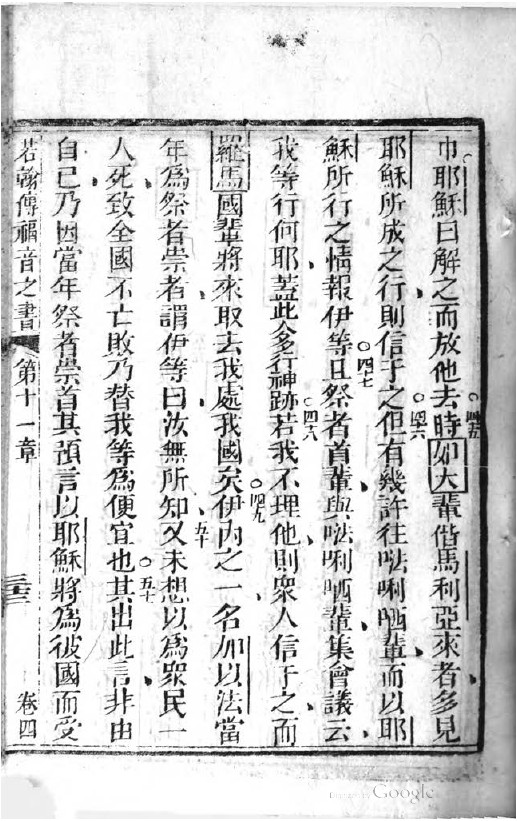 巾耶穌曰解之而放他去○四五時如大輩偕馬利亞來者多見
耶穌所成之行則信于之○四六但有幾許往𠵽唎哂輩而以耶
穌所行之情報伊等○四七且祭者首輩與𠵽唎哂輩集會議云
我等行何耶蓋此人多行神跡○四八若我不理他則衆人信于之而
羅馬國輩將來取去我處我國矣○四九伊內之一名加以法當
年為祭者崇者謂伊等曰汝無所知五十又未想以為衆民一
人死致全國不亡敗乃替我等為便宜也○五十其出此言非由
自己乃因當年祭者崇首其預言以耶穌將為彼國而受
若翰傳福音之書 第十一章 卷四
Google